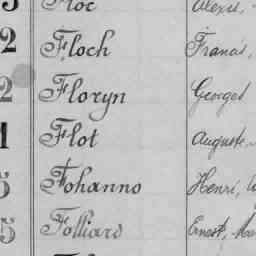 Floc Alexis,
2 Floch Francis,
2 Floryn Georges
1 Flot Auguste
5 Fohanno Henri,
5 Folliard Ernest,